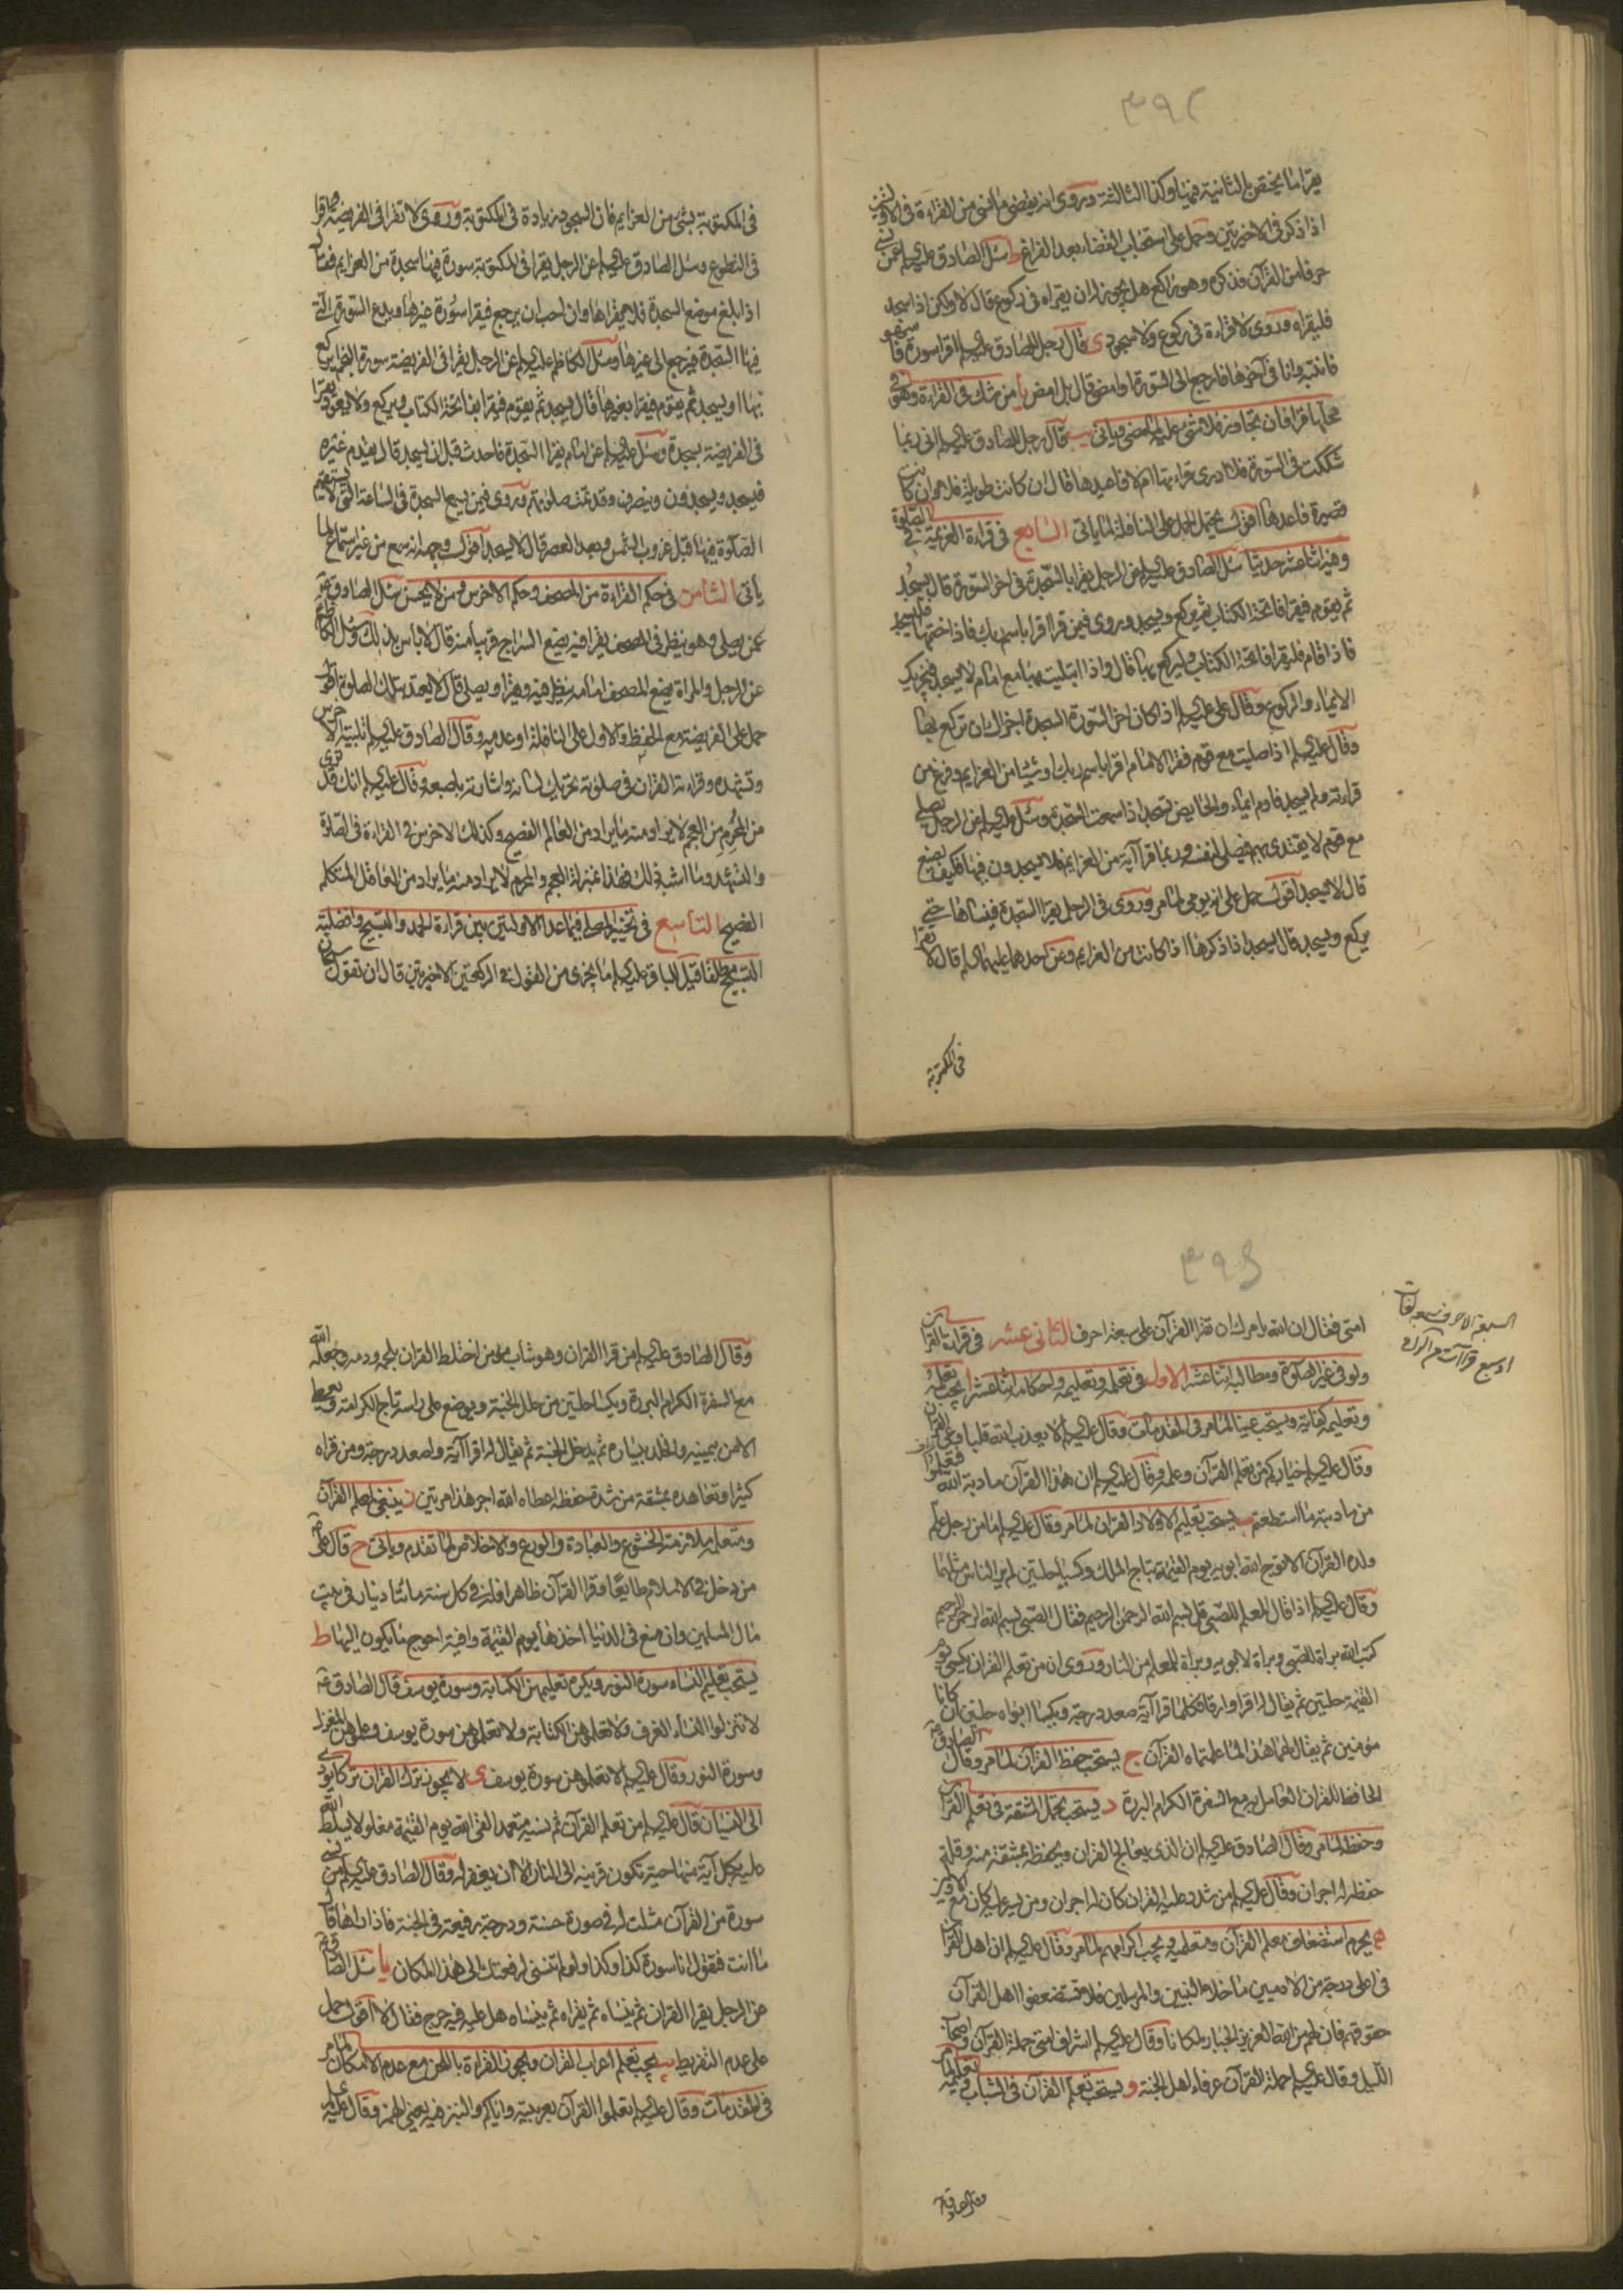 ٣٩٢
يقرا ما يخص بالثانية فيها وكذا الثالثة وروى انه يقضى ما نسى من القراءة فى الاوليين
اذا ذكر فى الاخيرتين وحمل على استحباب القضاء بعد الفراغ ط سئل الصادق عليه السلم عمن نسى
حرفا من القرآن فذكره وهو راكع هل يجوز له ان يقراه فى ركوع قال لا ولكن اذا سجد
فليقراه وروى لا قراءة فى ركوع ولا سجود ى قال رجل للصادق عليه السلم اقرا سورة فاسهو
فانتبه وانا فى آخرها فارجع الى السورة او امضى قال بل امض يا من شك فى القراءة وهو فى
محلها قرا فان تجاوزه فلا شئ عليه لما مضى وياتى يب قال رجل للصادق عليه السلم انى ربما
شككت فى السورة فلا ادرى قراءتها ام لا فاعيدها قال ان كانت طويلة فلا وان كانت
قصيرة فاعدها اقول يحتمل الحمل على النافلة لما ياتى السابع فى قراءة العزيمة فى الصلوة
وفيه اثنا عشر حديثا سئل الصادق عليه السلم عن الرجل يقرا بالسجدة فى اخر السورة قال يسجد
ثم يقوم فيقرا فاتحة الكتاب ثم يركع ويسجد وروى فيمن قرا اقرا باسم ربك فاذا ختمها فليسجد
فاذا قام فليقرا فاتحة الكتاب وليركع بها قال واذا ابتليت بها مع امام لا يسجد فيجزيك
الايماء والركوع وقال على عليه السلم اذا كان اخر السورة السجدة اجزاك ان تركع بها
وقال عليه السلم اذا صليت مع قوم فقرا الامام اقرا باسم ربك او شيئا من العزايم وفرغ من
قراءته ولم يسجد فاوم ايماء والحايض تسجد اذا سمعت السجدة وسئل عليه السلم عن الرجل يصلى
مع قوم لا يقتدى بهم فيصلى لنفسه وربما قرا آية من العزايم فلا يسجدون فيها فكيف يصنع
قال لا يسجد اقول حمل على انه يومى لما مر وروى فى الرجل يقرا السجدة فينساها حتى
يركع ويسجد قال يسجد اذا ذكرها اذا كانت من العزايم وعن احدهما عليهما السلم قال لا تقرا
فى المكتوبة
فى المكتوبة بشئ من العزايم فان السجود زيادة فى المكتوبة وروى لا تقرا فى الفريضة واقرا
فى التطوع وسئل الصادق عليه السلم عن الرجل يقرا فى المكتوبة سورة فيها سجدة من العزايم فقال
اذا بلغ موضع السجدة فلا يقراها وان احب ان يرجع فيقرا سورة غيرها ويدع السورة التى
فيها السجدة فيرجع الى غيرها وسئل الكاظم عليه السلم عن الرجل يقرا فى الفريضة سورة النجم ايركع
بها او يسجد ثم يقوم فيقرا بغيرها قال يسجد ثم يقوم فيقرا بفاتحة الكتاب ويركع ولا يعود يقرا
فى الفريضة بسجدة وسئل عليه السلم عن امام يقرا السجدة فاحدث قبل ان يسجد قال يقدم غيره
فيسجد ويسجدون وينصرف وقد تمت صلوتهم وروى فيمن يسمع السجدة فى الساعة التى لا يستقيم
الصلوة فيها قبل غروب الشمس وبعد العصر قال لا يسجد اقول وجهه انه سمع من غير استماع لما
ياتى الثامن فى حكم القراءة من المصحف وحكم الاخرس ومن لا يحسن سئل الصادق ع
عمن يصلى وهو ينظر فى المصحف يقرا فيه يضع السراج قريبا منه قال لا باس بذلك وسئل الكاظم
عن الرجل والمراة يضع المصحف امامه ينظر فيه ويقرا ويصلى قال لا يعتد بتلك الصلوة اقول
حمل على الفريضة مع الحفظ والاول على النافلة او عدمه وقال الصادق عليه السلم تلبية الاخرس
وتشهده وقراءته القران فى صلوته تحريك لسانه واشارته باصبعه وقال عليه السلم انك قد ترى
من المحرم من العجم لا يراد منه ما يراد من العالم الفصيح وكذلك الاخرس فى القراءة فى الصلوة
والتشهد وما اشبه ذلك فهذا بمنزلة العجم والمحرم لا يراد منه ما يراد من العاقل المتكلم
الفصيح التاسع فى تخيير المصلى فيما عدا الاولتين بين قراءة الحمد والتسبيح وافضلية
التسبيح مطلقا قيل للباقر عليه السلم ما يجزى من القول فى الركعتين الاخيرتين قال ان تقول سبحان
٣٩٤
السبعة الاحرف سبع لغات
او سبع قراآت
امتى فقال ان الله يامرك ان تقرا القرآن على سبعة احرف الثانى عشر فى قراءة القرآن
ولو فى غير الصلوة ومطالبه اثنا عشر الاول فى تعلمه وتعليمه واحكامه اثنا عشر ا يجب تعلمه
وتعليمه كفاية ويستحب عينا لما مر فى المقدمات وقال عليه السلم لا يعذب الله قلبا وعى القرآن
وقال عليه السلم خياركم من تعلم القرآن وعلمه وقال عليه السلم ان هذا القرآن مادبة الله فتعلموا
من مادبته ما استطعتم ب يستحب تعليم الاولاد القران لما مر وقال عليه السلم ما من رجل علم
ولده القرآن الا توج الله ابويه يوم القيمة بتاج الملك وكسيا حلتين لم ير الناس مثلهما
وقال عليه السلم اذا قال المعلم للصبى قل بسم الله الرحمن الرحيم فقال الصبى بسم الله الرحمن الرحيم
كتب الله براة للصبى وبراة لابويه وبراة للمعلم من النار وروى ان من تعلم القران يكسى يوم
القيمة حلتين ثم يقال له اقرا وارقا فكلما قرا آية صعد درجة ويكسا ابواه حلتين ان كانا
مؤمنين ثم يقال لهما هذا لما علمتماه القرآن ج يستحب حفظ القرآن لما مر وقال الصادق ع
الحافظ للقران العامل به مع السفرة الكرام البررة د يستحب تحمل المشقة فى تعلم القرآن
وحفظه لما مر وقال الصادق عليه السلم ان الذى يعالج القران ويحفظه بمشقة منه وقلة
حفظ له اجران وقال عليه السلم من شدد عليه القران كان له اجران ومن يسر عليه كان مع الاولين
ه يحرم استضعاف معلم القرآن ومتعلمه ويجب اكرامهم لما مر وقال عليه السلم ان اهل القرآن
فى اعلى درجة من الادميين ما خلا النبيين والمرسلين فلا تستضعفوا اهل القرآن
حقوقهم فان لهم من الله العزيز الجبار لمكانا وقال عليه السلم اشراف امتى حملة القرآن واصحاب
الليل وقال عليه السلم حملة القرآن عرفاء اهل الجنة و يستحب تعلم القرآن فى الشباب وتعليمه لما مر
وقال الصادق
وقال الصادق عليه السلم من قرا القران وهو شاب مؤمن اختلط القران بلحمه ودمه وجعله الله
مع السفرة الكرام البررة ويكسا حلتين من حلل الجنة ويوضع على راسه تاج الكرامة ويعطى
الامن بيمينه والخلد بيساره ثم يدخل الجنة ثم يقال له اقرا آية واصعد درجة ومن قراه
كثيرا وتعاهده بمشقة من شدة حفظه اعطاه الله اجر هذا مرتين ز ينبغى لمعلم القرآن
ومتعلمه ملازمة الخشوع والعبادة والورع والاخلاص لما تقدم وياتى ح قال على ع
من دخل فى الاسلام طايعا وقرا القرآن ظاهرا فله فى كل سنة مائتا دينار فى بيت
مال المسلمين وان منع فى الدنيا اخذها يوم القيمة وافية احوج ما يكون اليها ط
يستحب تعليم النساء سورة النور ويكره تعليمهن الكتابة وسورة يوسف قال الصادق ع
لا تنزلوا النساء الغرف ولا تعلموهن الكتابة ولا تعلموهن سورة يوسف وعلموهن المغزل
وسورة النور وقال عليه السلم لا تعلموهن سورة يوسف ى لا يجوز ترك القران تركا يؤدى
الى النسيان قال عليه السلم من تعلم القرآن ثم نسيه متعمدا لقى الله يوم القيمة مغلولا يسلط الله
عليه بكل آية منها حية تكون قرينه الى النار الا ان يغفر له وقال الصادق عليه السلم من نسى
سورة من القرآن مثلت له فى صورة حسنة ودرجة رفيعة فى الجنة فاذا راها قال
ما انت فتقول انا سورة كذا وكذا ولو لم تنسنى لرفعتك الى هذا المكان يا سئل الصادق ع
عن الرجل يقرا القران ثم ينساه ثم يقراه ثم ينساه هل عليه فيه حرج فقال لا اقول حمل
على عدم التفريط يب يجب تعلم اعراب القران ويجوز القراءة باللحن مع عدم الامكان لما مر
فى المقدمات وقال عليه السلم تعلموا القرآن بعربيته واياكم والنبز فيه يعنى الهمز وقال عليه السلم